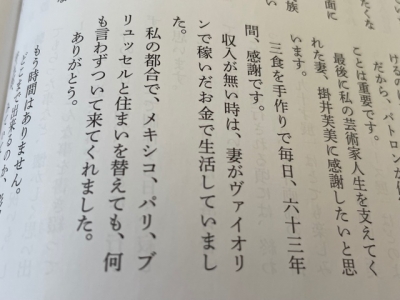 だから、パトロンが
ことは重要です。
最後に私の芸術家人生を支えてく
れた妻、掛井芙美に感謝したいと思
います。
三食を手作りで毎日、六十三年
間、感謝です。
収入が無い時は、妻がヴァイオリ
ンで稼いだお金で生活していまし
た。
私の都合で、メキシコ、パリ、ブ
リュッセルと住まいを替えても、何
も言わずついて来てくれました。
ありがとう。
もう時間はありません。
どこまで出来るのか、